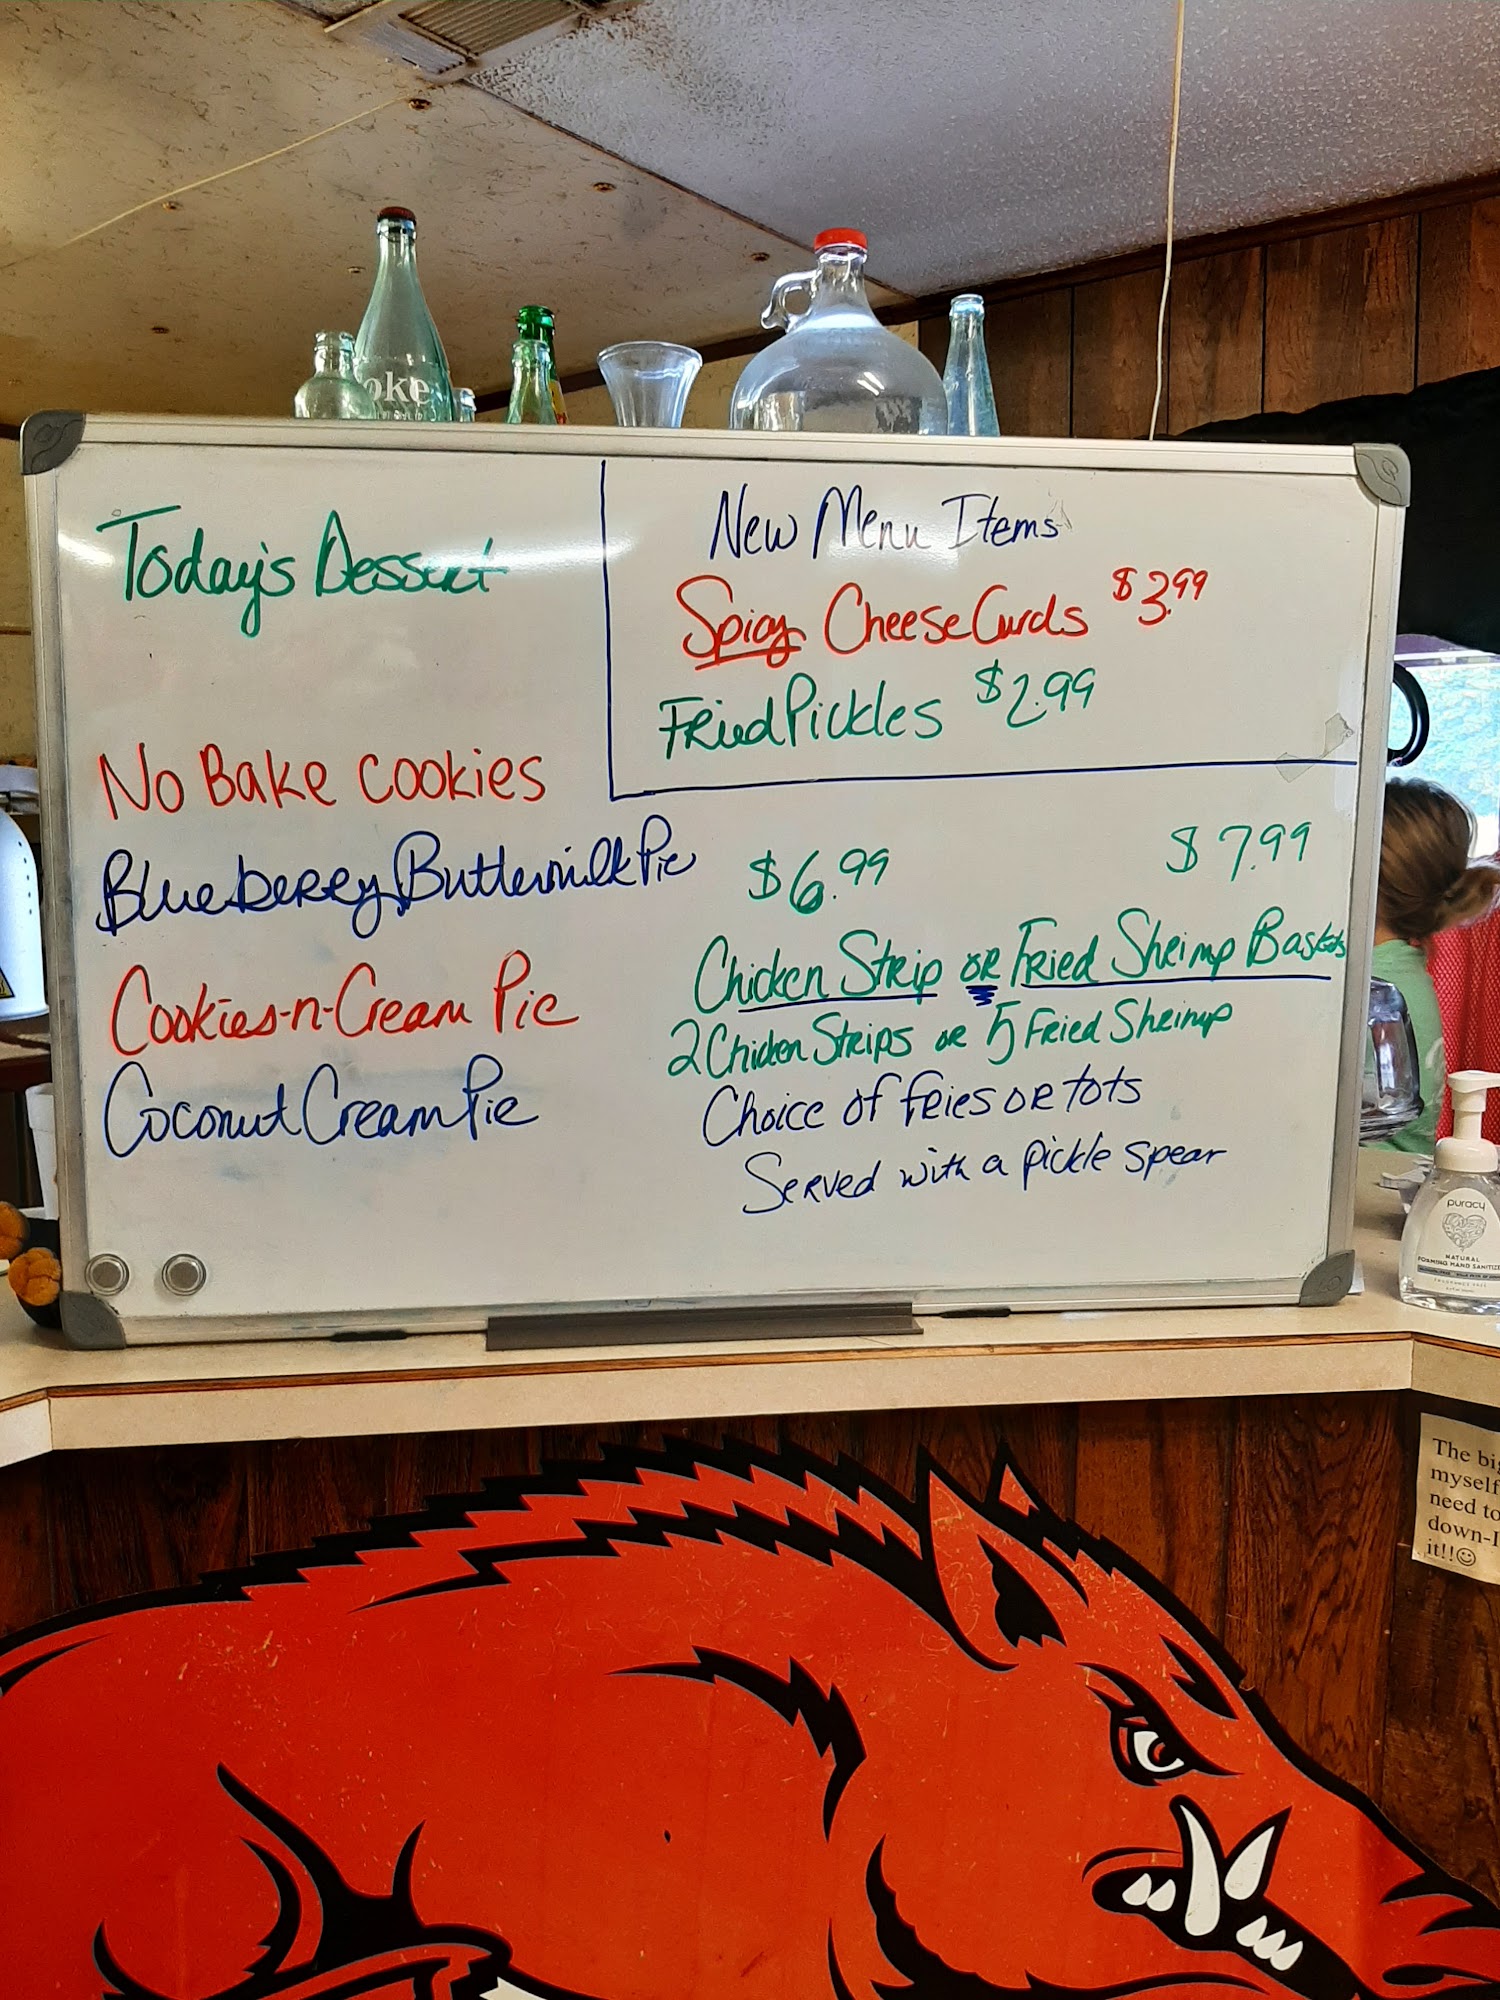 oke
Today's Dessert
No Bake Cookies
Blueberry Buttermilk Pie
Cookies-n-Cream Pie
Coconut Cream Pie
New Menu Items
Spicy Cheese Curds $3.99
Fried Pickles $2.99
$6.99 $7.99
Chicken Strip or Fried Shrimp Baskets
2 Chicken Strips or 5 Fried Shrimp
Choice of fries or tots
Served with a pickle spear
puracy
NATURAL
FOAMING HAND SANITIZE
The big
myself
need to
down-I
it!!☺